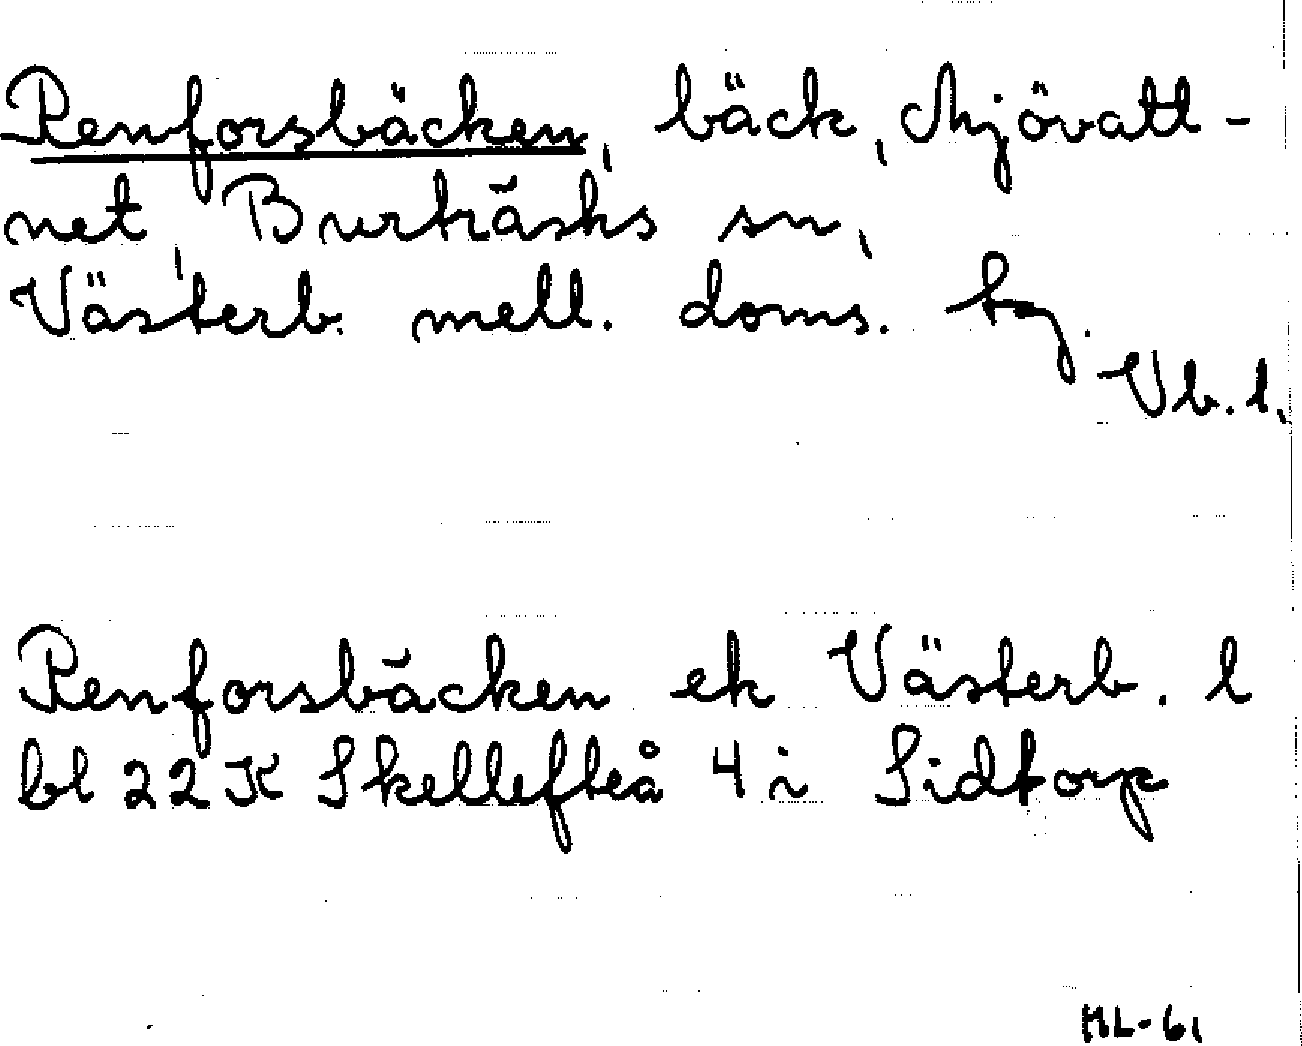 Renforsbäcken, bäck, Mjövatt-
net, Burträsks sn,
Västerb. mell. doms. tg.
Vb. l.
Renforsbäcken ek Västerb. l
bl 22 K Skellefteå 4 i Sidtorp
ML-61